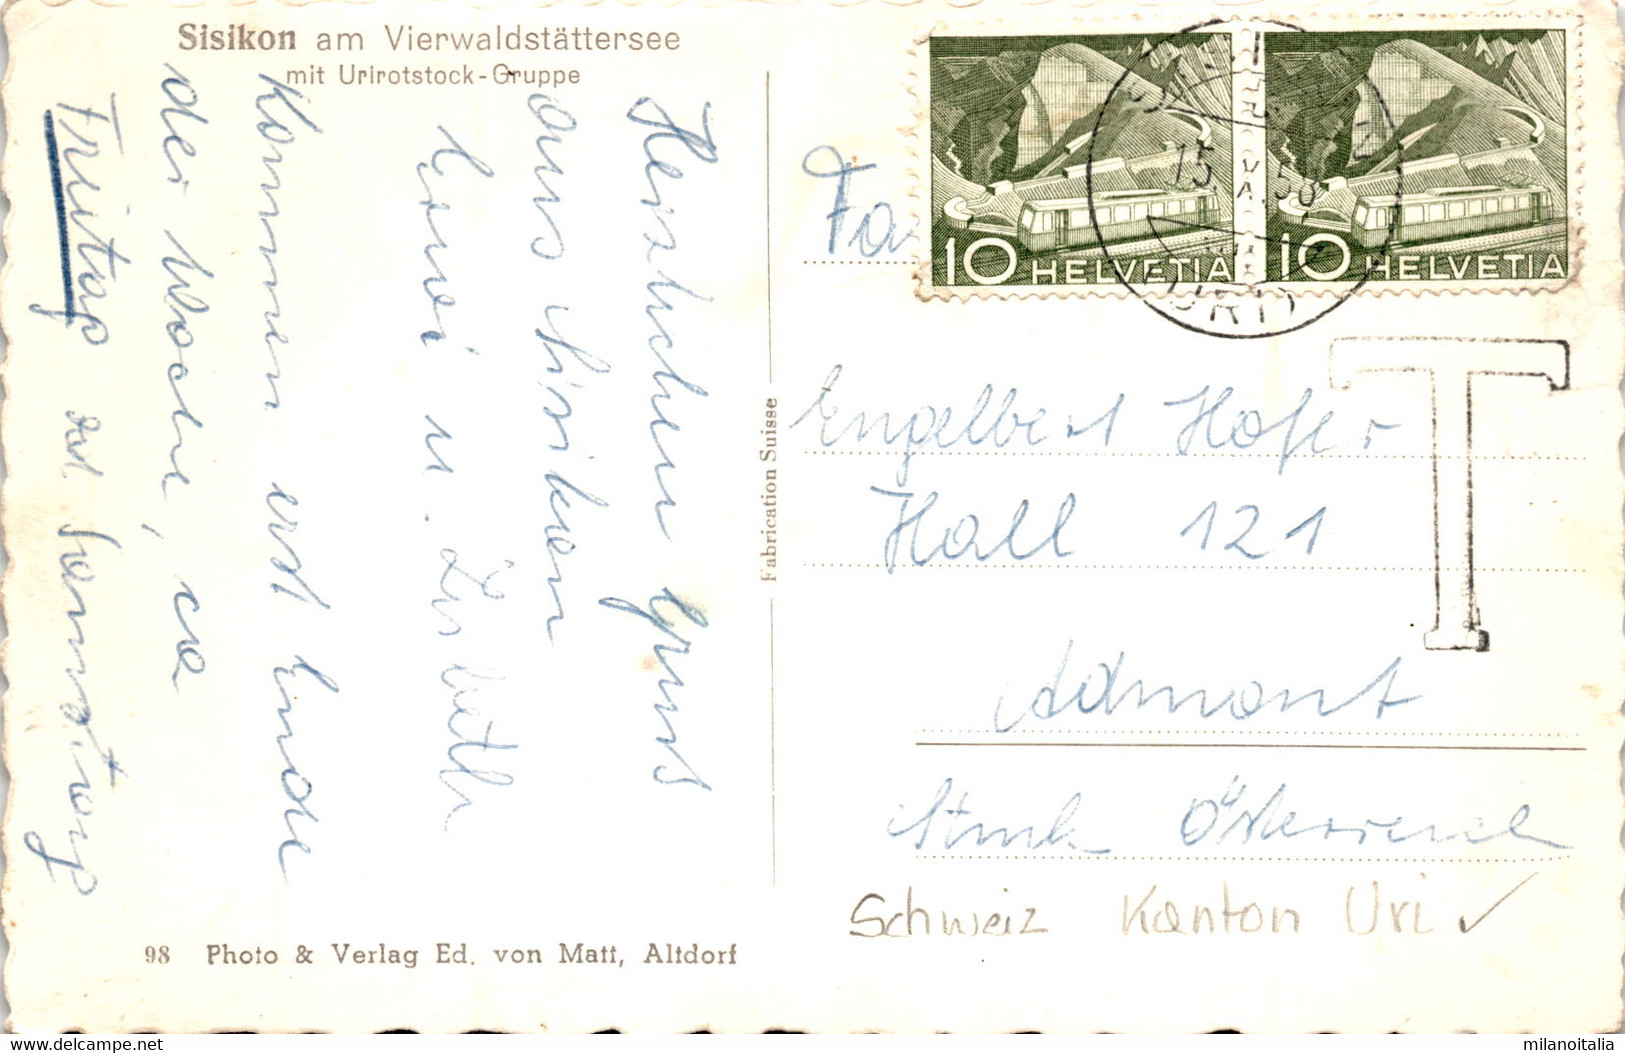 Sisikon am Vierwaldstättersee
mit Urirotstock-Gruppe
Herzlichen Gruss
aus Sisikon
Erwi u. Lisbeth
Kommen erst Ende
der Woche, ca
Freitag od. Samstag
Fabrication Suisse
98 Photo & Verlag Ed. von Matt, Altdorf
10 HELVETIA
10 HELVETIA
15. VII. 58
(URI)
T
Fa
Engelbert Hofer
Hall 121
Admont
Stmk Österreich
Schweiz Kanton Uri ✓
98
milanoitalia